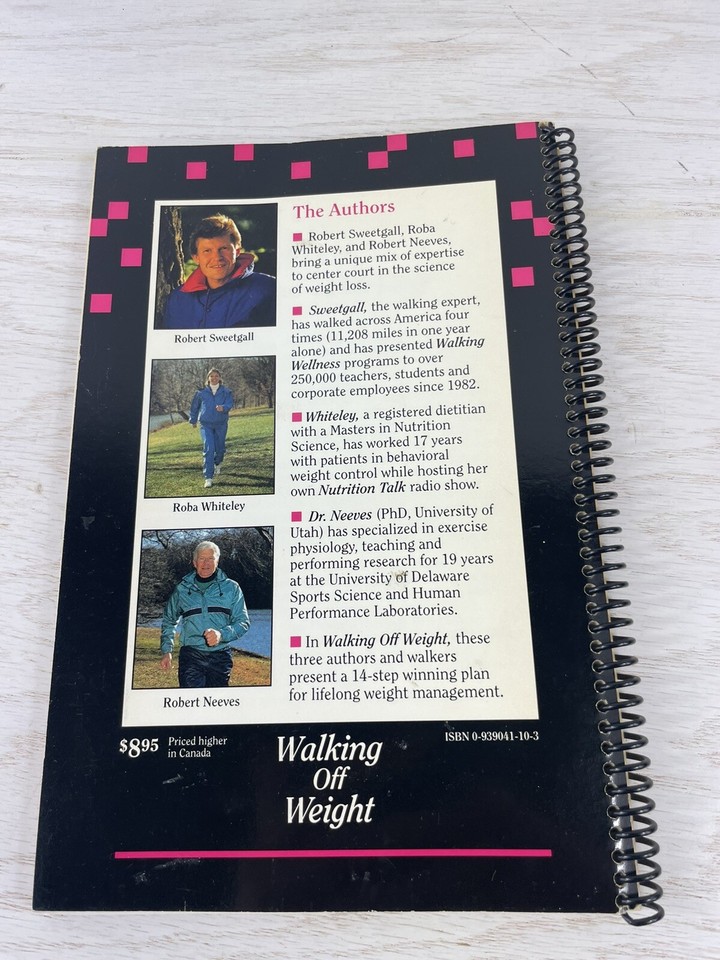 The Authors
■ Robert Sweetgall, Roba
Whiteley, and Robert Neeves,
bring a unique mix of expertise
to center court in the science
of weight loss.
■ Sweetgall, the walking expert,
has walked across America four
times (11,208 miles in one year
alone) and has presented Walking
Wellness programs to over
250,000 teachers, students and
corporate employees since 1982.
■ Whiteley, a registered dietitian
with a Masters in Nutrition
Science, has worked 17 years
with patients in behavioral
weight control while hosting her
own Nutrition Talk radio show.
■ Dr. Neeves (PhD, University of
Utah) has specialized in exercise
physiology, teaching and
performing research for 19 years
at the University of Delaware
Sports Science and Human
Performance Laboratories.
■ In Walking Off Weight, these
three authors and walkers
present a 14-step winning plan
for lifelong weight management.
Robert Sweetgall
Roba Whiteley
Robert Neeves
$895 Priced higher
in Canada
Walking
Off
Weight
ISBN 0-939041-10-3